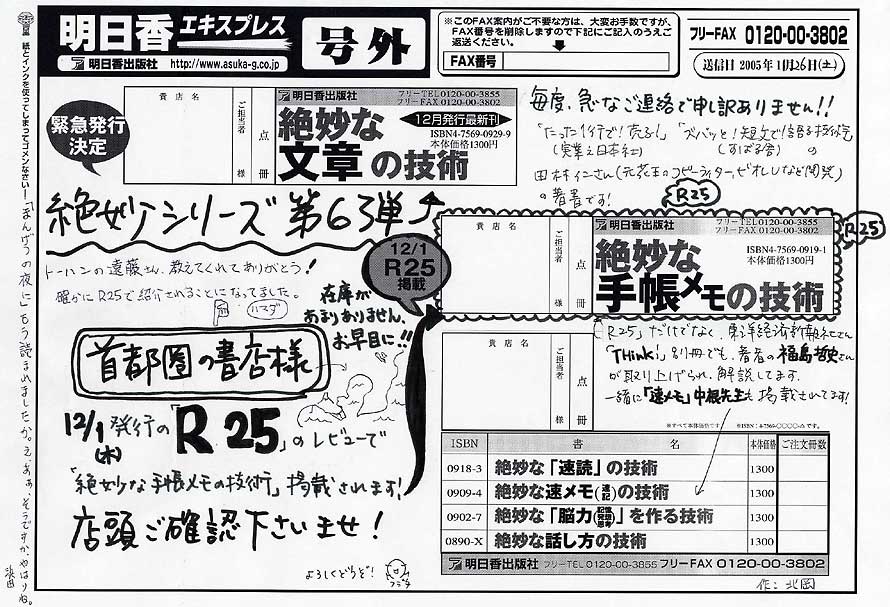 明日香エキスプレス
明日香出版社 http://www.asuka-g.co.jp
号外
※このFAX案内がご不要な方は、大変お手数ですが、
FAX番号を削除しますので下記にご記入のうえご
返送ください。
FAX番号
フリーFAX 0120-00-3802
送信日 2005年 1月26日(土)
緊急発行
決定
貴店名
ご担当者
様
点
冊
明日香出版社
フリーTEL0120-00-3855
フリーFAX 0120-00-3802
絶妙な
文章の技術
12月発行最新刊
ISBN4-7569-0929-9
本体価格1300円
毎度、急なご連絡で申し訳ありません!!
「たった1行で!売る!」
(実業之日本社)
(すばる舎)
の
田村仁さん
の著書です!
絶妙シリーズ 第63弾
トーハンの遠藤さん、教えてくれてありがとう!
確かにR25で紹介されることになってました。
ハマダ
12/1
R25
掲載
在庫が
あまりありません、
お早目に!!
R25
R25
貴店名
ご担当者
様
点
冊
明日香出版社
フリーTEL0120-00-3855
フリーFAX 0120-00-3802
絶妙な
手帳メモの技術
ISBN4-7569-0919-1
本体価格1300円
首都圏の書店様
12/1(木)発行の「R25」のレビューで
「絶妙な手帳メモの技術」掲載されます!
店頭ご確認下さいませ!
よろしくどうぞ!
「R25」だけでなく、東洋経済新報社さん
「Think!」別冊でも、著者の福島哲史さん
が取り上げられ、解説してます。
一緒に「速メモ」中根先生も掲載されてます!
貴店名
ご担当者
様
点
冊
※すべて本体価格です。 ※ISBN:4-7569-○○○○-○です。
ISBN 書名 本体価格 ご注文冊数
0918-3 絶妙な「速読」の技術 1300
0909-4 絶妙な速メモ(速記)の技術 1300
0902-7 絶妙な「脳力(記憶 発想 思考)」を作る技術 1300
0890-X 絶妙な話し方の技術 1300
明日香出版社 フリーTEL 0120-00-3855 フリーFAX 0120-00-3802
作:北岡
紙とインクを使ってしまってゴメンなさい!「まんげつの夜に」もう読まれましたか。え、あぁ、そうですか、やはりね。
浜田